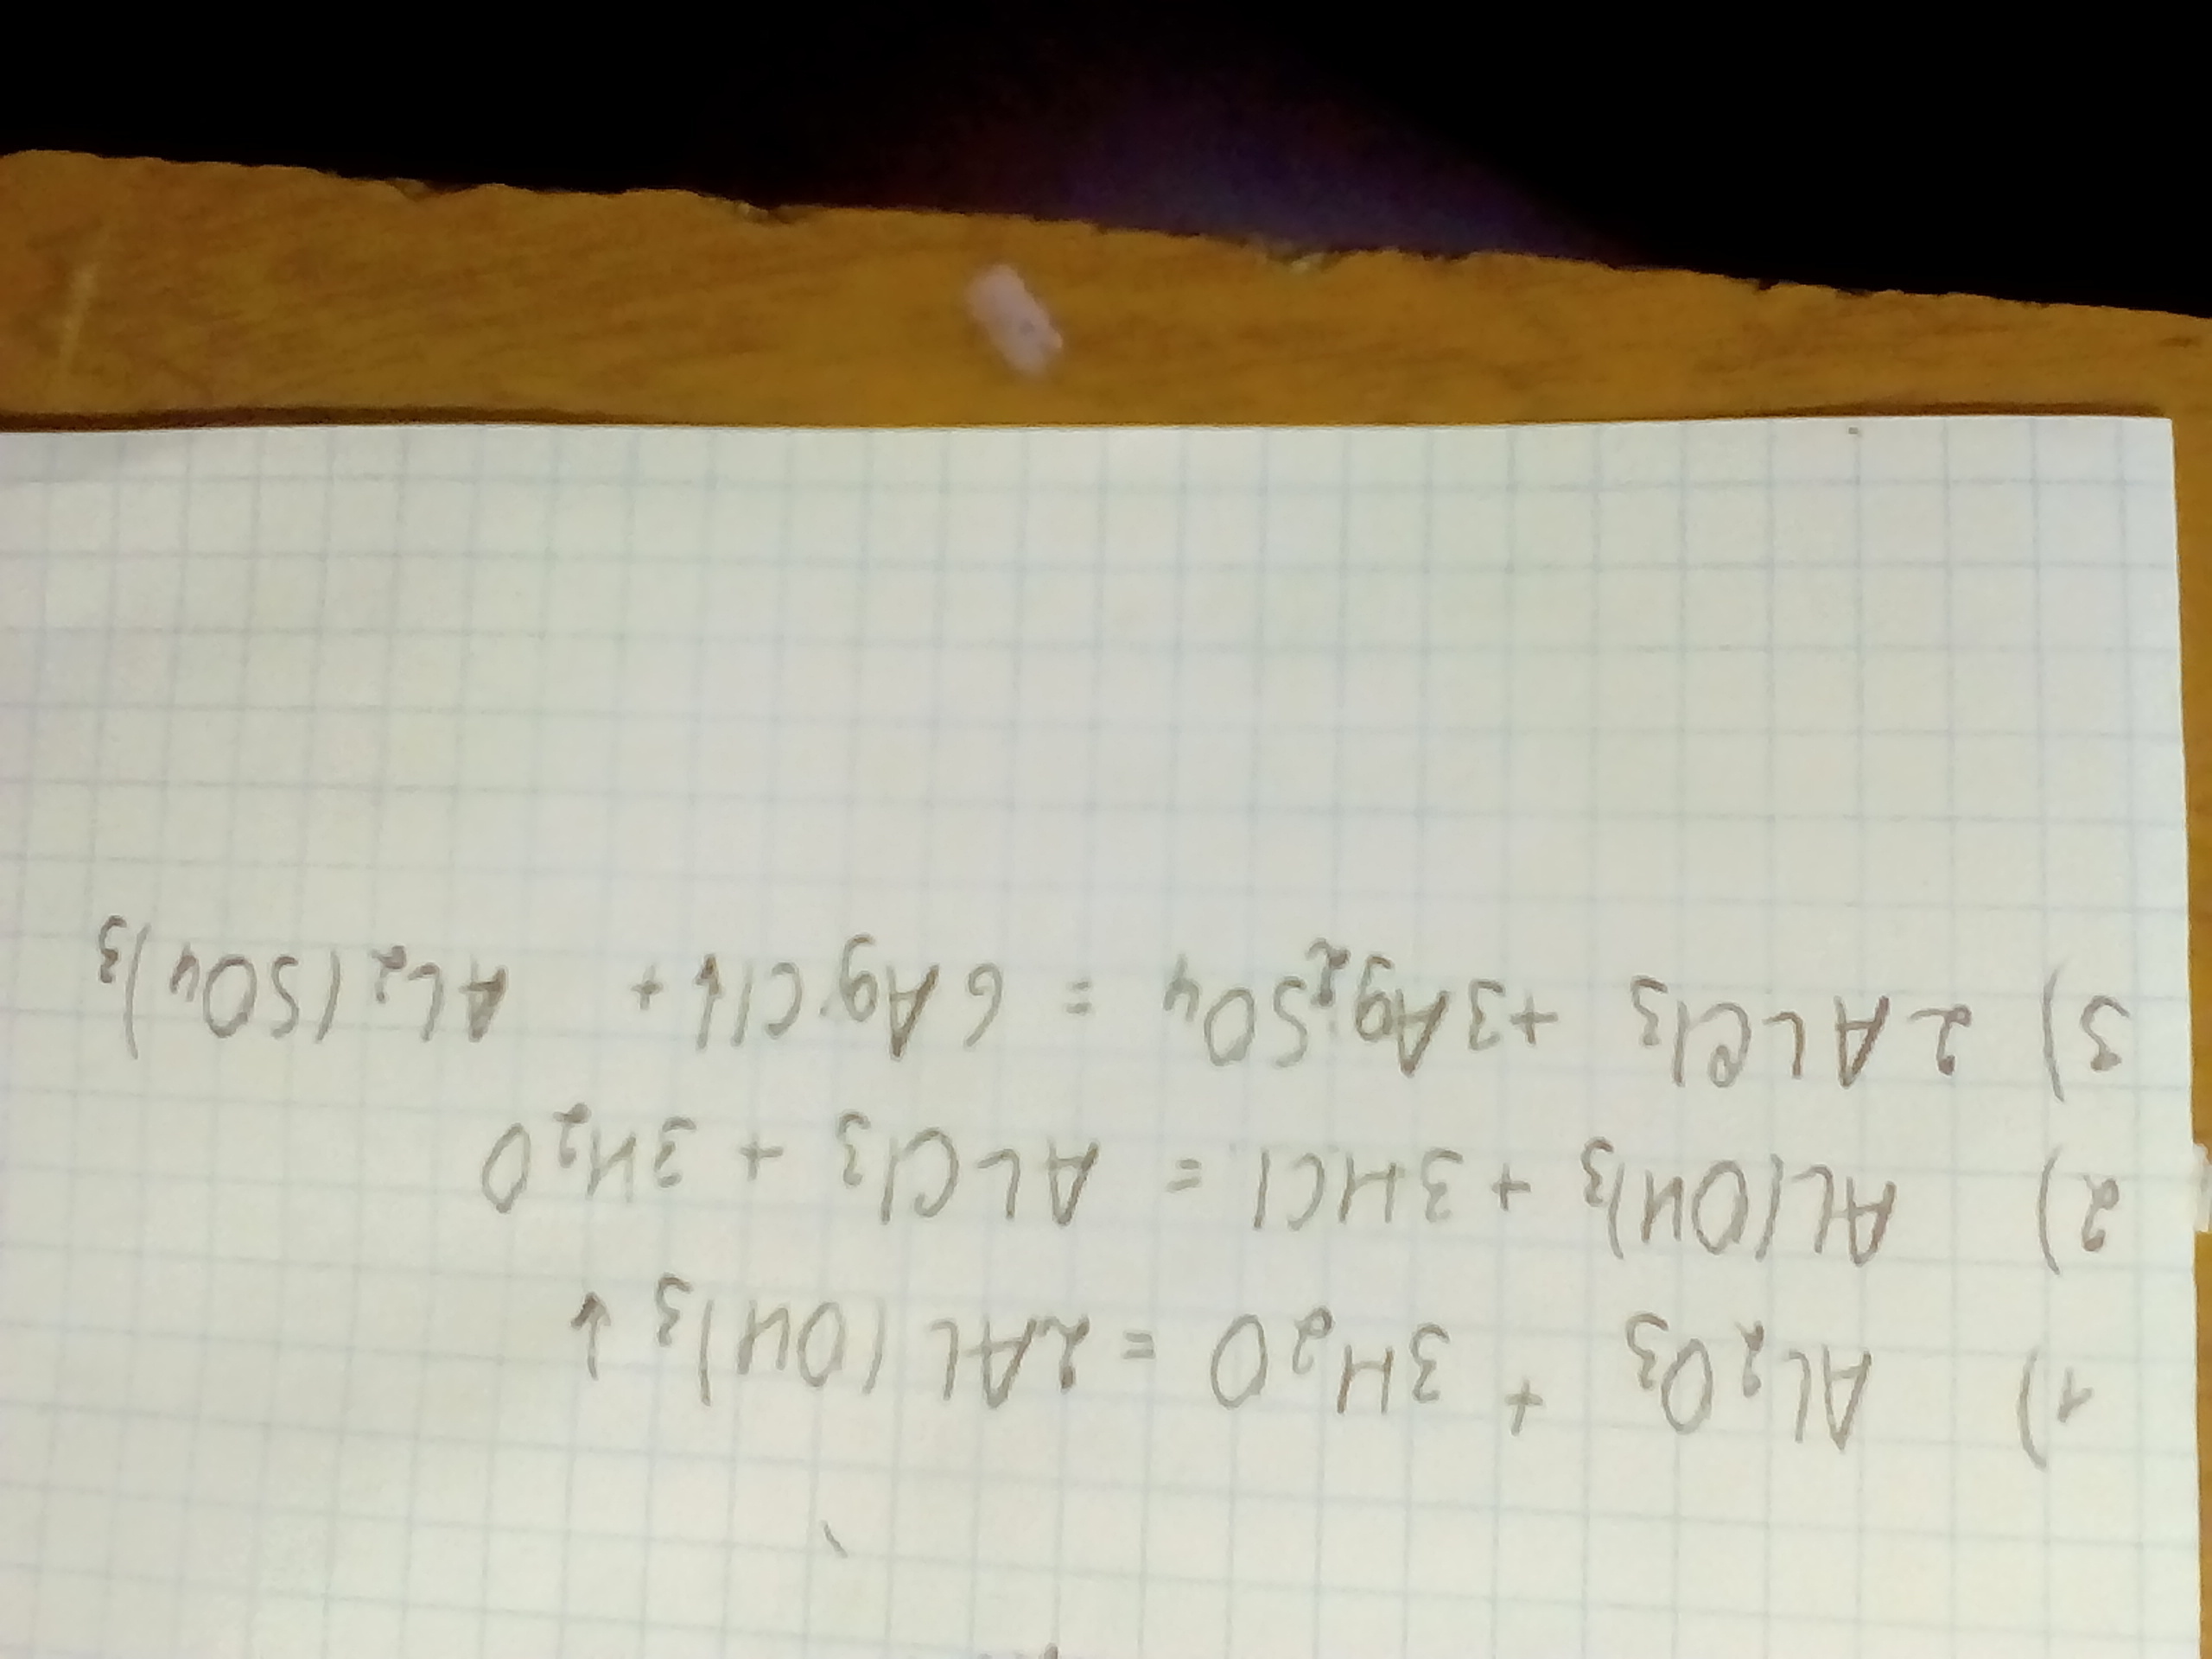 1) AL₂O₃ + 3H₂O = 2AL(OH)₃ ↓
2) AL(OH)₃ + 3HCl = ALCl₃ + 3H₂O
3) 2ALCl₃ + 3Ag₂SO₄ = 6AgCl↓ + AL₂(SO₄)₃